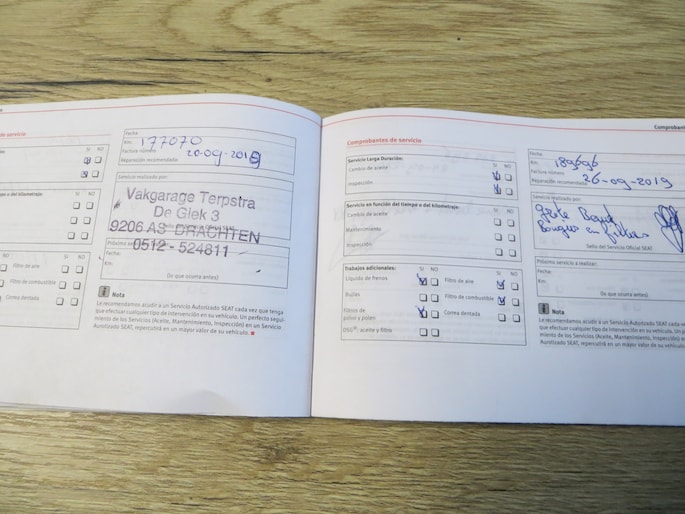 de servicio
SI NO
Fecha
Km: 177070
Factura número
Reparación recomendada 20-09-2018
Servicio realizado por:
Vakgarage Terpstra
De Giek 3
9206 AS DRACHTEN
0512 - 524811
o del kilometraje:
SI NO
Próximo
Fecha:
Km:
(lo que ocurra antes)
SI NO
Filtro de aire
Filtro de combustible
Correa dentada
i Nota
Le recomendamos acudir a un Servicio Autorizado SEAT cada vez que tenga
que efectuar cualquier tipo de intervención en su vehículo. Un perfecto segui-
miento de los Servicios (Aceite, Mantenimiento, Inspección) en un Servicio
Autorizado SEAT, repercutirá en un mayor valor de su vehículo.
Comprobant
Comprobantes de servicio
Servicio Larga Duración: SI NO
Cambio de aceite
Inspección
Servicio en función del tiempo o del kilometraje:
SI NO
Cambio de aceite
Mantenimiento
Inspección
Trabajos adicionales: SI NO SI NO
Líquido de frenos Filtro de aire
Bujías Filtro de combustible
Filtros de
polvo y polen Correa dentada
DSG®: aceite y filtro
Fecha
Km: 189696
Factura número
Reparación recomendada 26-09-2019
Servicio realizado por:
en
Sello del Servicio Oficial SEAT
Próximo servicio a realizar:
Fecha:
Km:
(lo que ocurra antes)
i Nota
Le recomendamos acudir a un Servicio Autorizado SEAT
que efectuar cualquier tipo de intervención en su vehículo.
miento de los Servicios (Aceite, Mantenimiento, Inspección)
Autorizado SEAT, repercutirá en un mayor valor de su